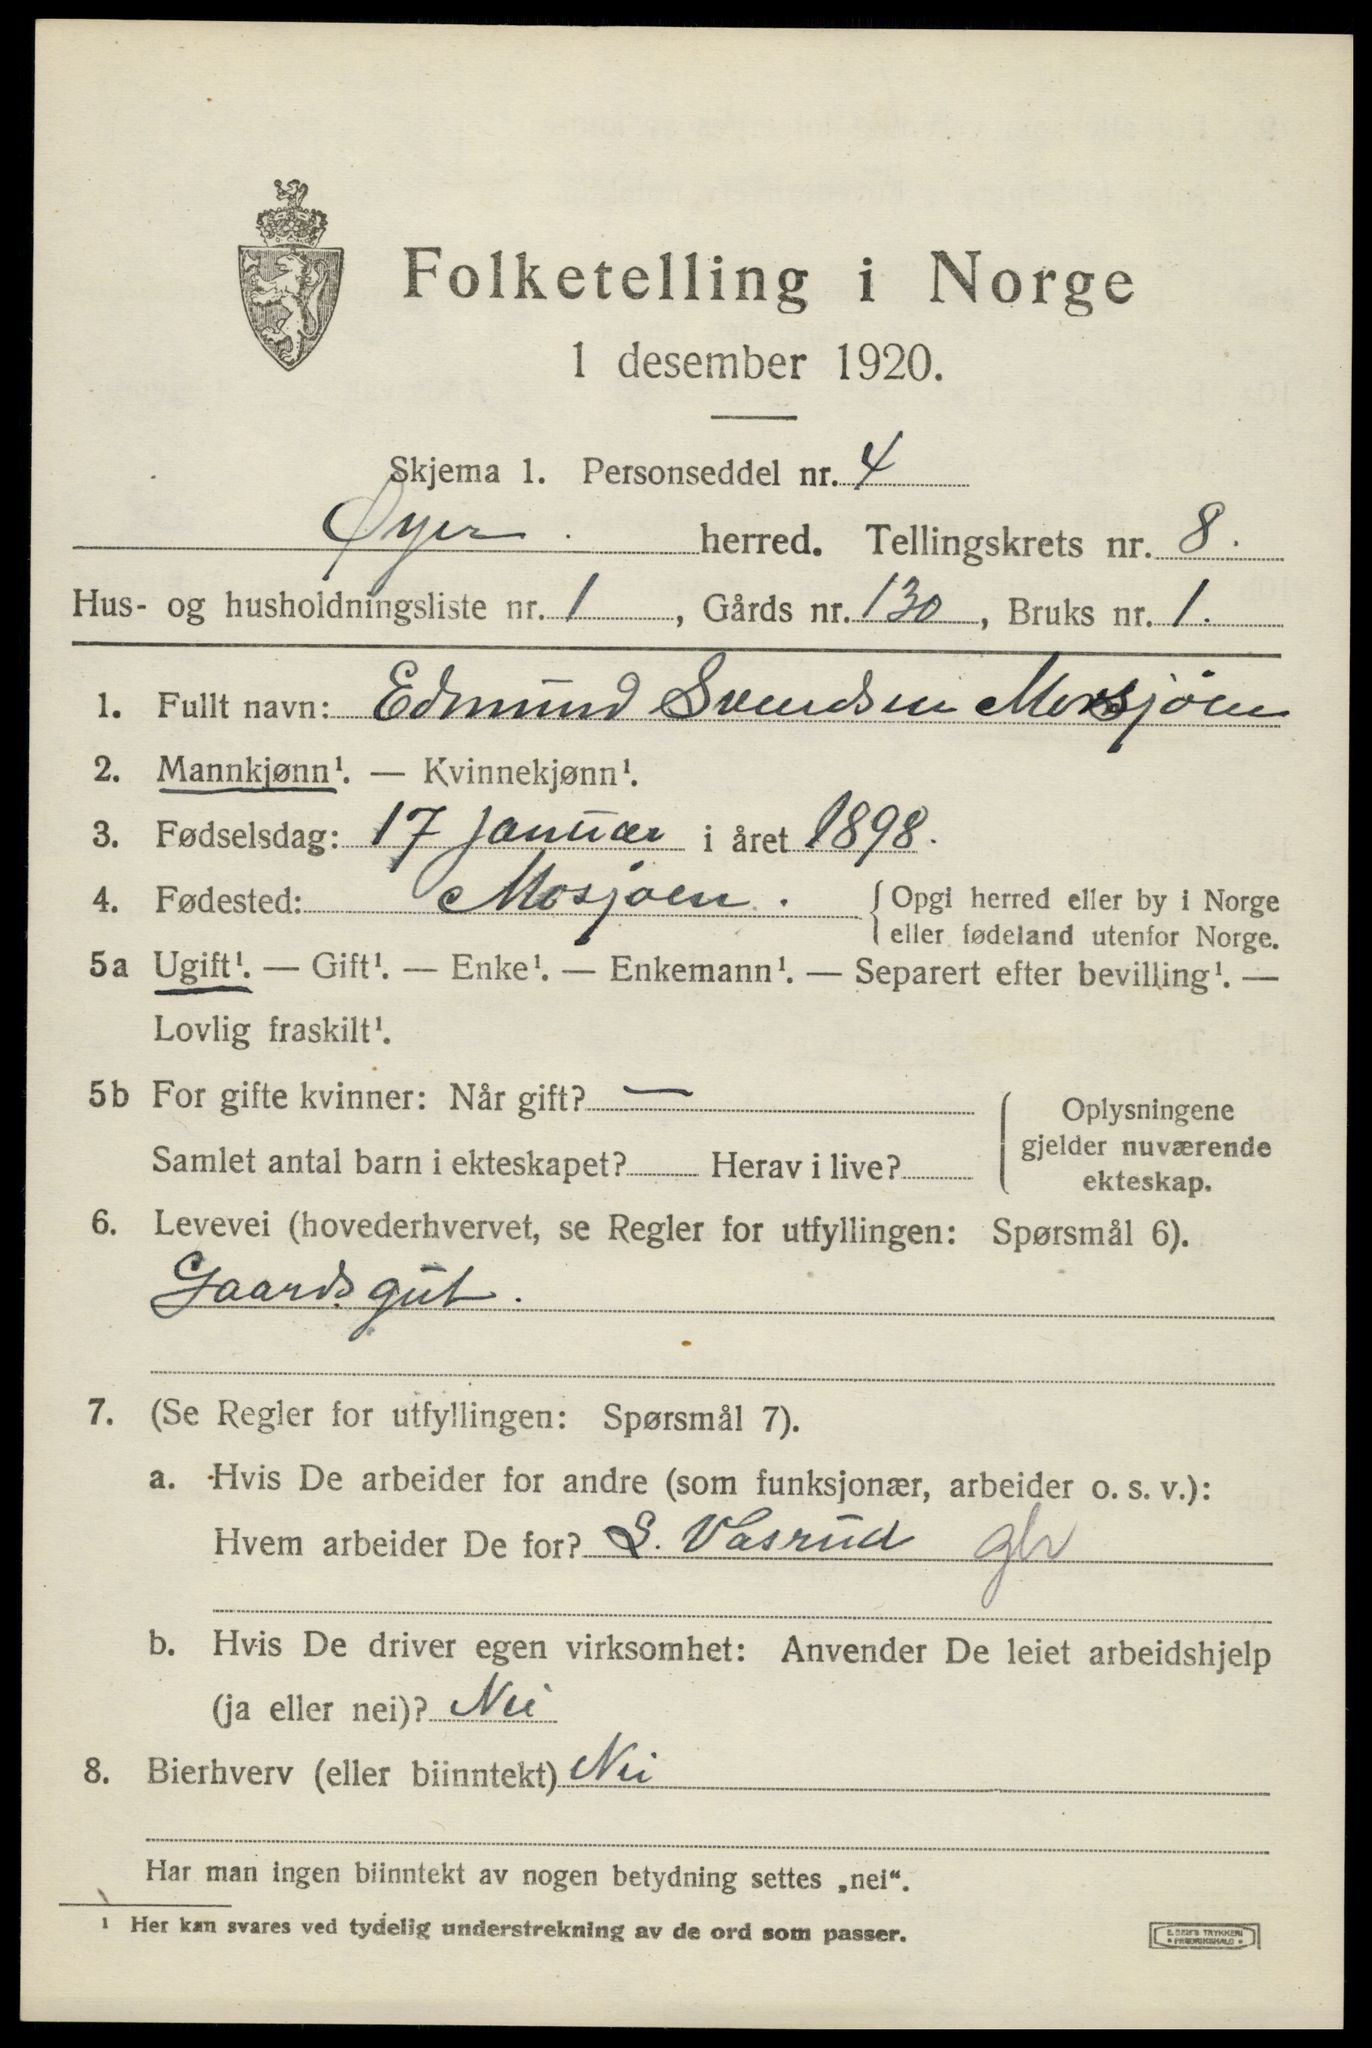 Folketelling i Norge
1 desember 1920.
Skjema 1. Personseddel nr. 4
Øyer. herred. Tellingskrets nr. 8.
Hus- og husholdningsliste nr. 1, Gårds nr. 130, Bruks nr. 1.
1. Fullt navn: Edmund Svendsen Mosjøen
2. Mannkjønn¹. — Kvinnekjønn¹.
3. Fødselsdag: 17 januar i året 1898.
4. Fødested: Mosjøen. { Opgi herred eller by i Norge
eller fødeland utenfor Norge.
5a Ugift¹. — Gift¹. — Enke¹. — Enkemann¹. — Separert efter bevilling¹. —
Lovlig fraskilt¹.
5b For gifte kvinner: Når gift? —
Samlet antal barn i ekteskapet? Herav i live?
Oplysningene
gjelder nuværende
ekteskap.
6. Levevei (hovederhvervet, se Regler for utfyllingen: Spørsmål 6).
Gaardsgut.
7. (Se Regler for utfyllingen: Spørsmål 7).
a. Hvis De arbeider for andre (som funksjonær, arbeider o. s. v.):
Hvem arbeider De for? S. Vasrud
b. Hvis De driver egen virksomhet: Anvender De leiet arbeidshjelp
(ja eller nei)? Nei
8. Bierhverv (eller biinntekt) Nei
Har man ingen biinntekt av nogen betydning settes „nei“.
¹ Her kan svares ved tydelig understrekning av de ord som passer.